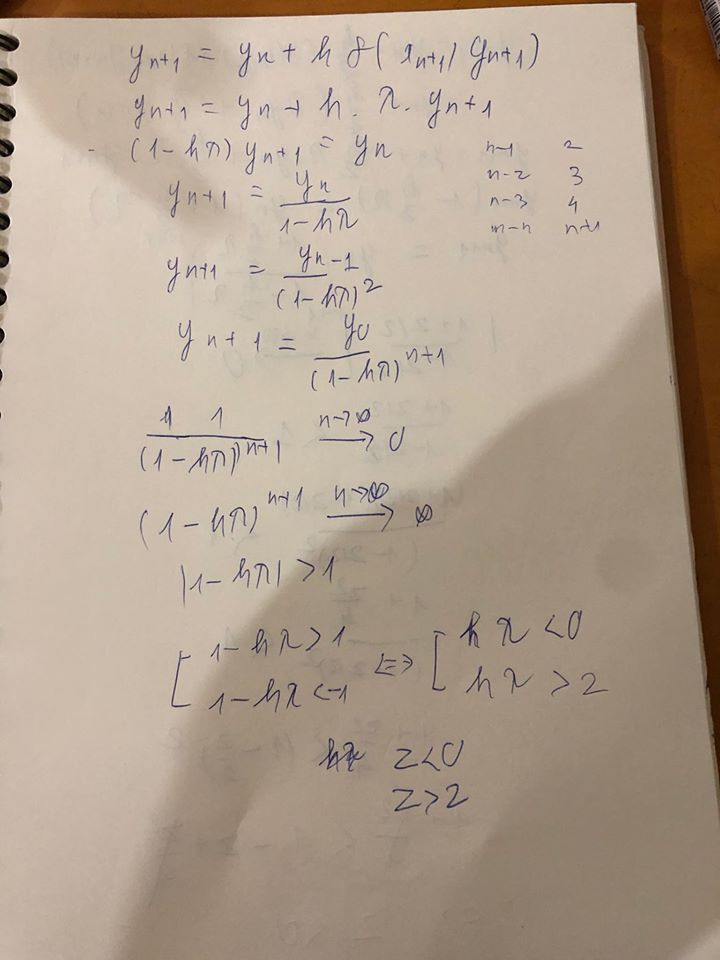 y_{n+1} = y_n + h f(x_{n+1}, y_{n+1})
y_{n+1} = y_n + h . λ . y_{n+1}
(1 - hλ) y_{n+1} = y_n
n-1 2
n-2 3
n-3 4
n-n n+1
y_{n+1} = y_n / (1 - hλ)
y_{n+1} = y_{n-1} / (1 - hλ)^2
y_{n+1} = y_0 / (1 - hλ)^{n+1}
1 / (1 - hλ)^{n+1} \xrightarrow{n→∞} 0
(1 - hλ)^{n+1} \xrightarrow{n→∞} ∞
|1 - hλ| > 1
[ 1 - hλ > 1 ⇔ [ hλ < 0
1 - hλ < -1 hλ > 2
z < 0
z > 2